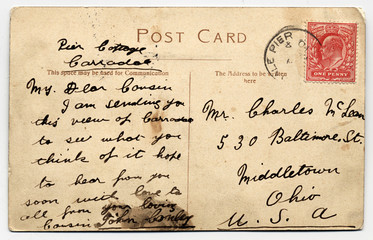 POST CARD
Pier Cottage
Carradale
This space may be used for Communication
The Address to be written here
My Dear Cousin
I am sending you
this view of Carradale
to see what you
thinks of it hope
to hear from you
soon with love to
all from your loving
Cousin John
Mr. Charles McLean
530 Baltimore, St.
Middletown
Ohio
U. S. A
LE PIER
ONE PENNY